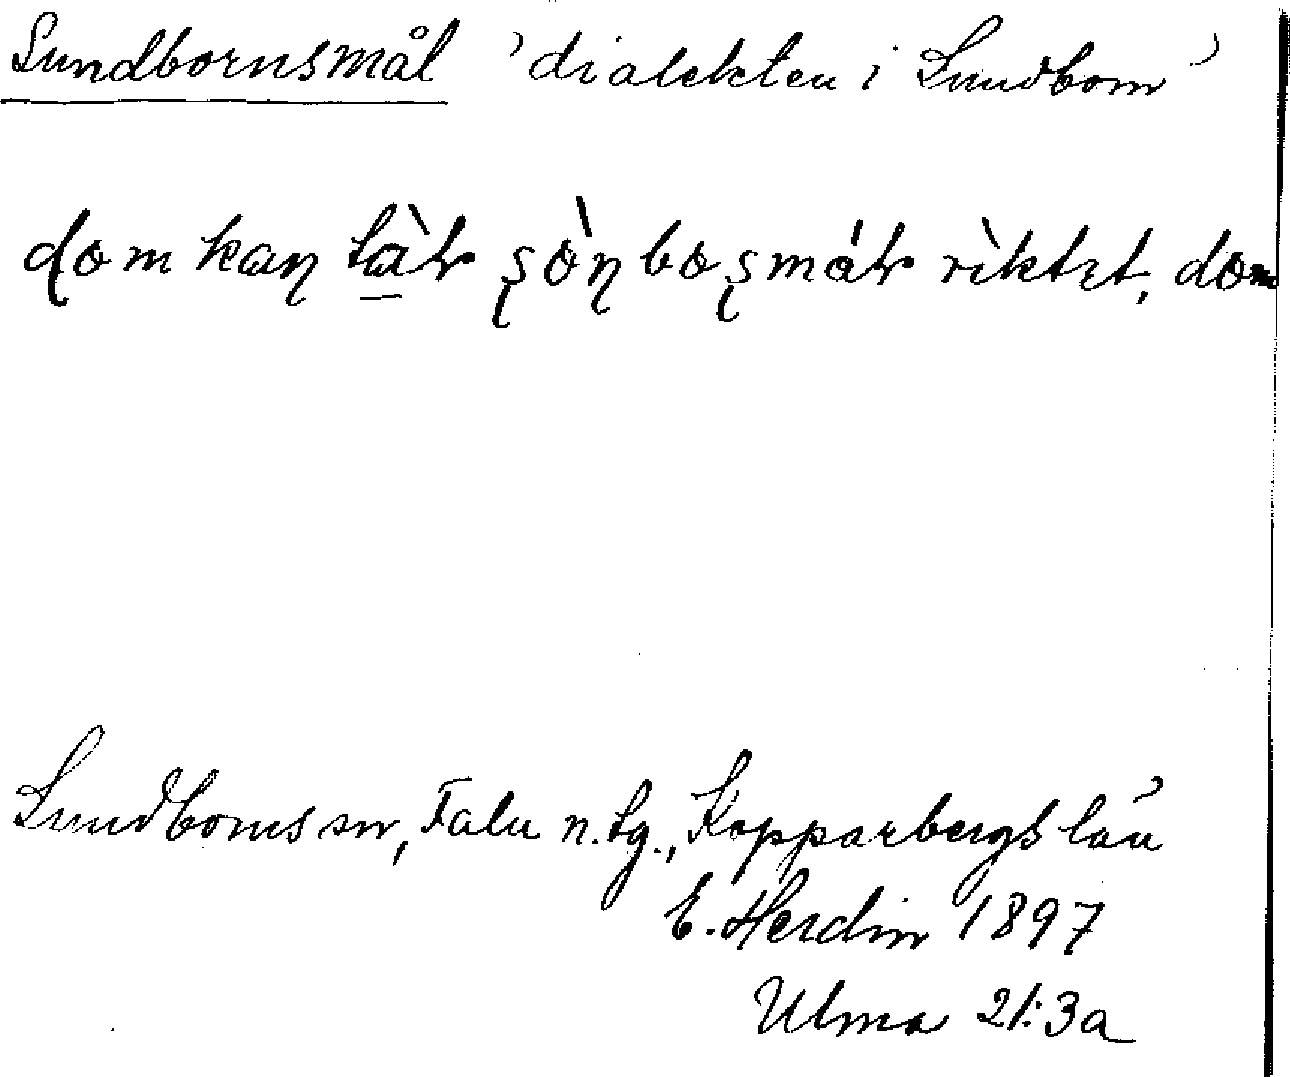 Sundbornsmål 'dialekten i Sundborn'
dom kan tàɽ sònbosmáɽ rìktɩt, dom
Sundborns sn, Falu n. tg., Kopparbergs län
E. Herdin 1897
Ulma 21:3a